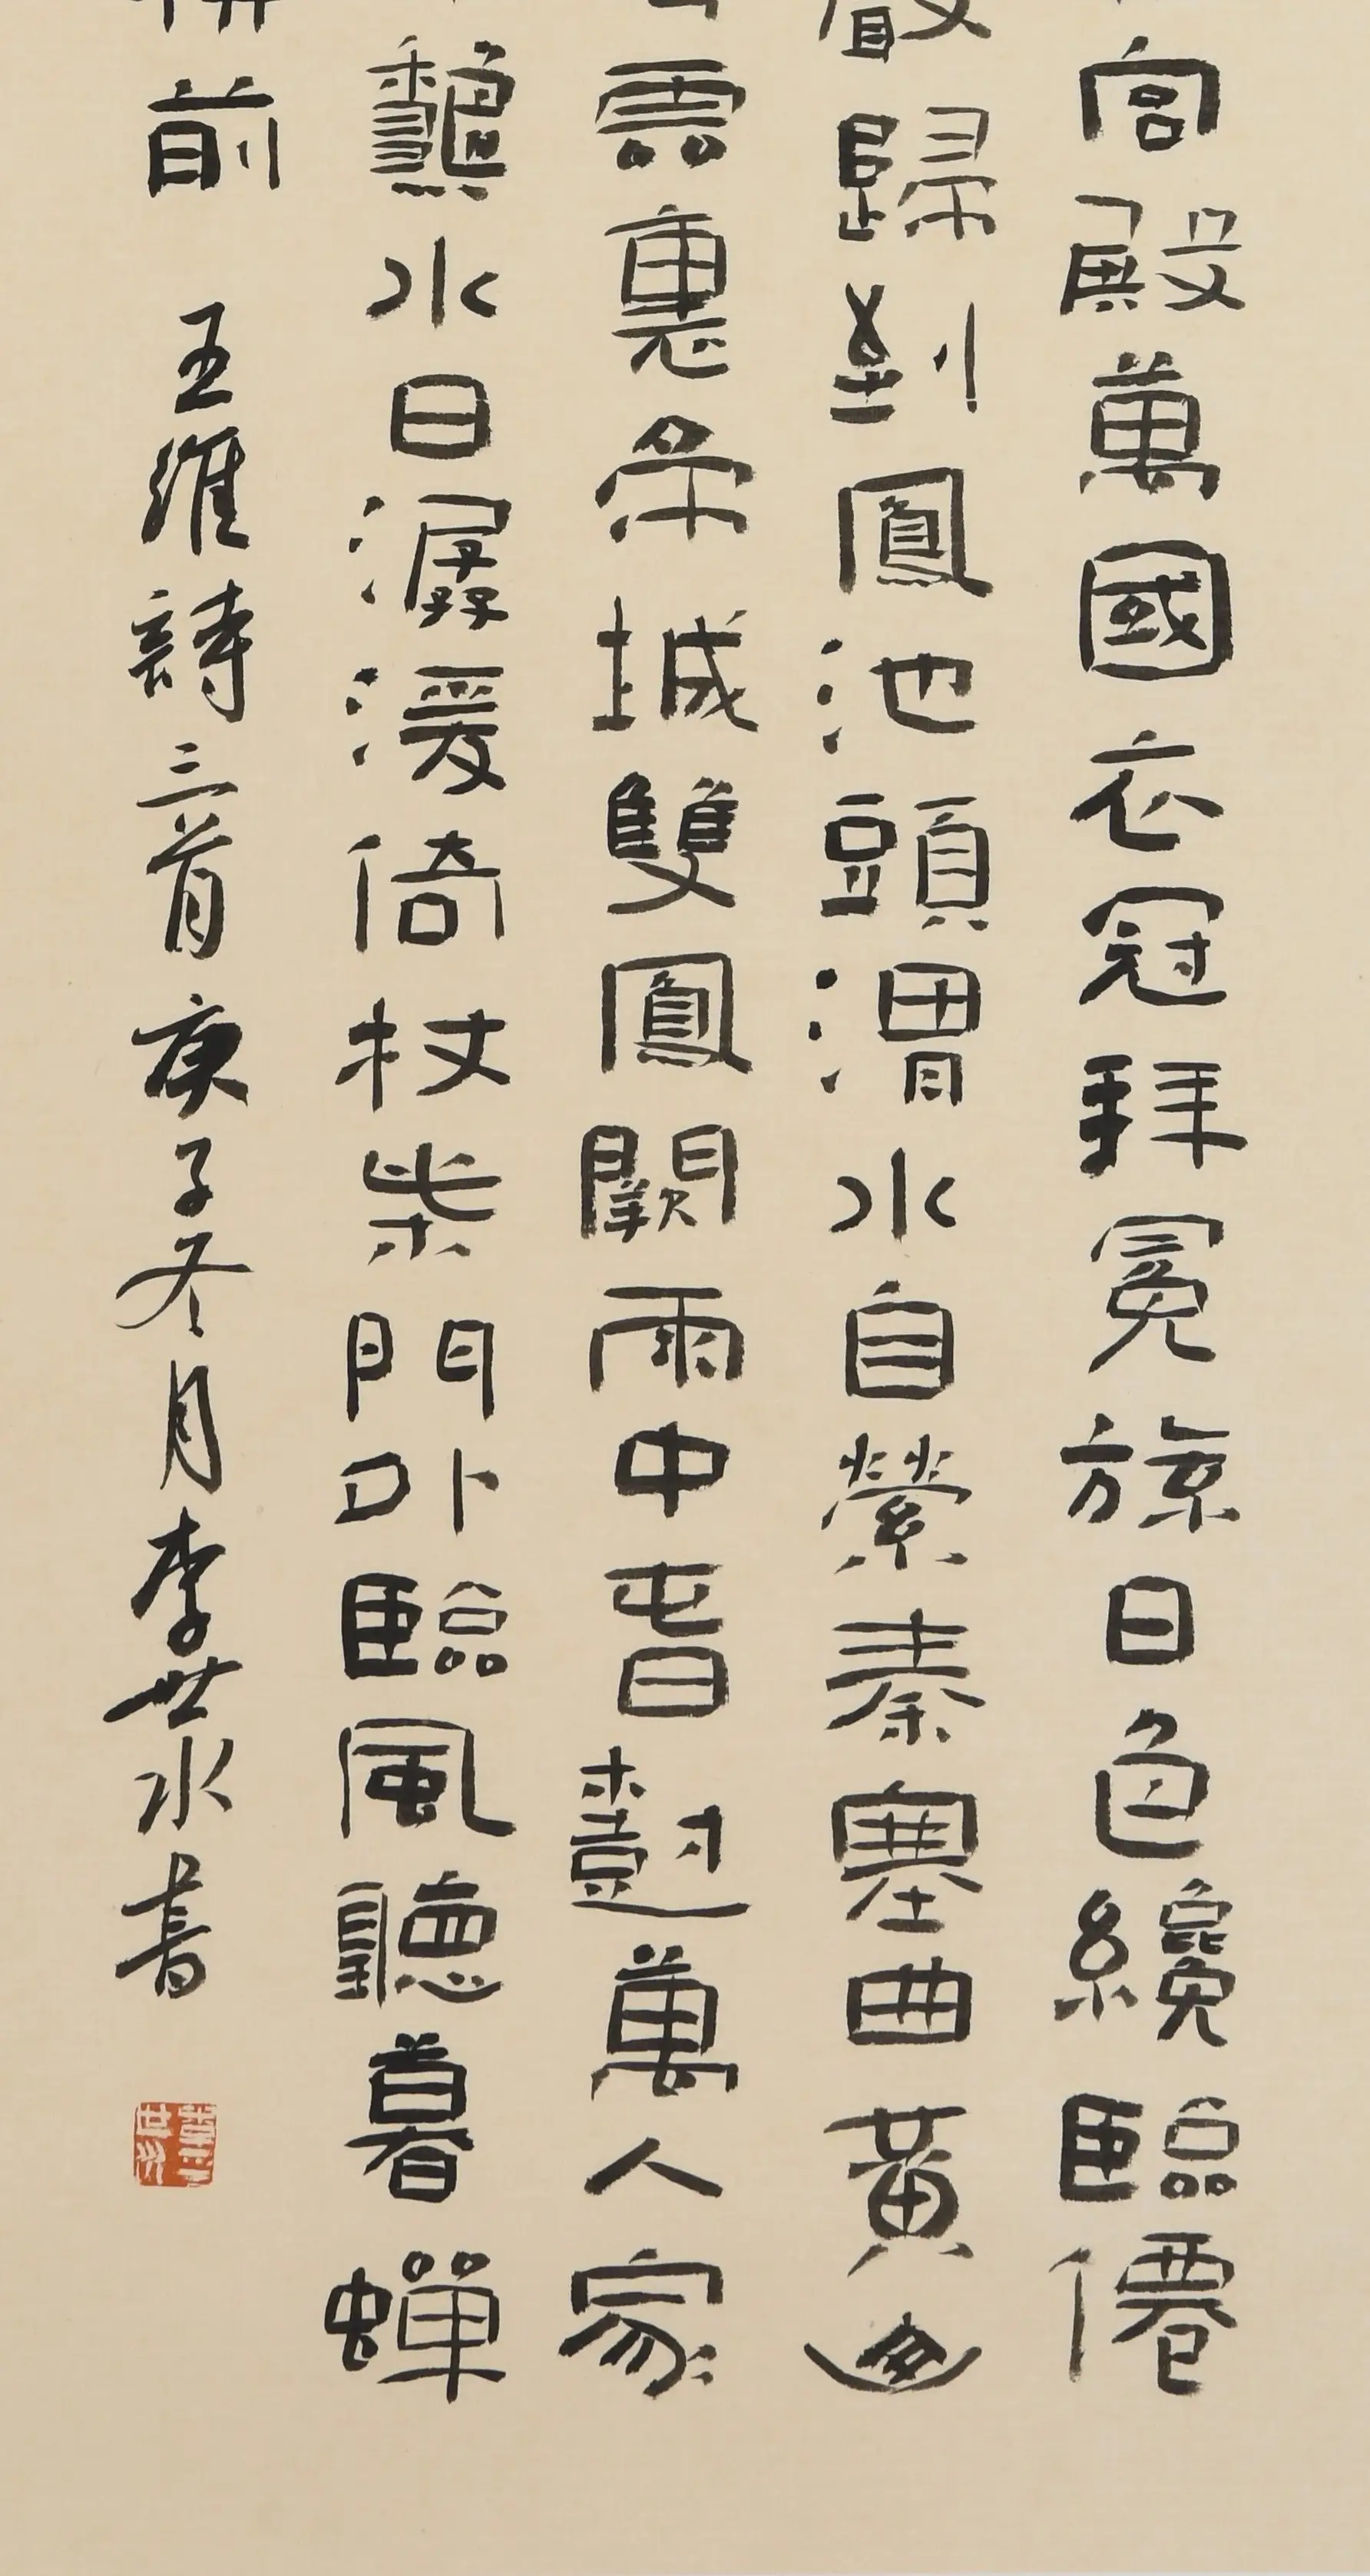 宮殿萬國衣冠拜冕旒日色纔臨僊
歸到鳳池頭渭水自縈秦塞曲黃
雲裏帝城雙鳳闕雨中春樹萬人家
龝水日潺湲倚杖柴門外臨風聽暮蟬
前 王維詩三首 庚子冬月李世水書